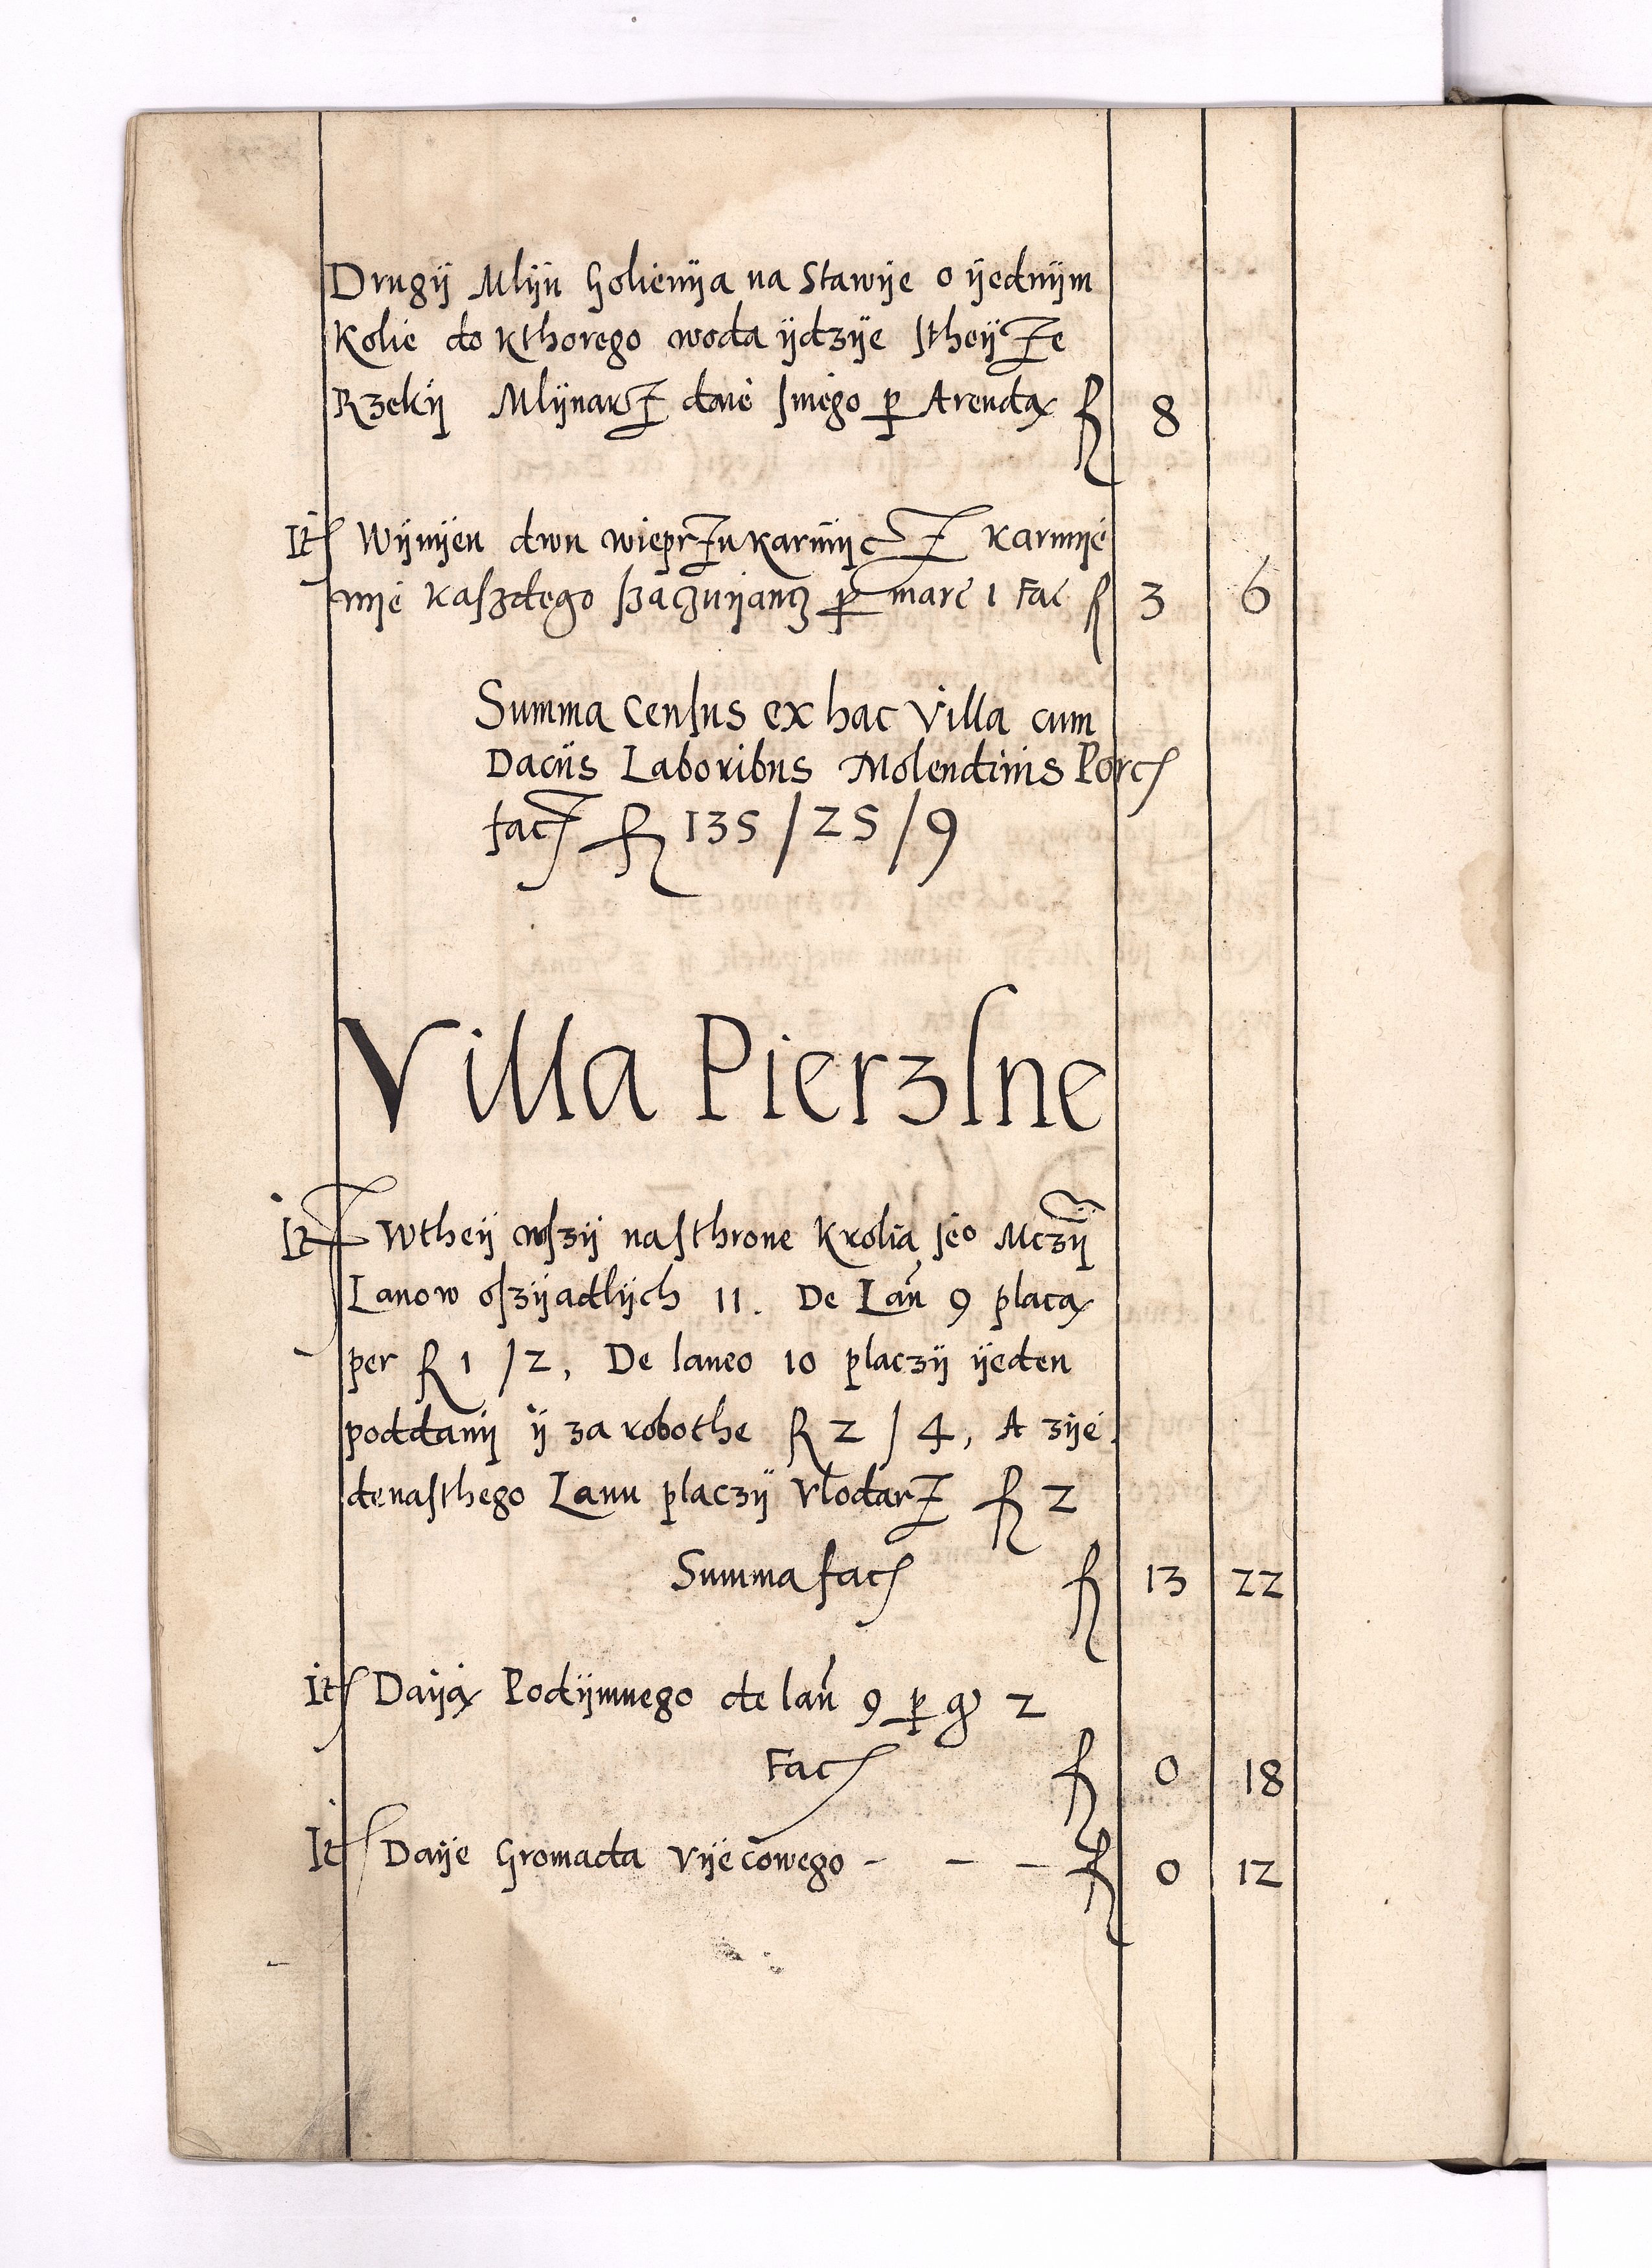 Drugÿ Mlÿn Golienÿa na Stawÿe o ÿednÿm
Kolie do kthorego woda ÿdzÿe stheÿże
Rzekÿ Mlÿnarż daie snięgo per Arendą fl 8
It Wÿmÿen dwu wieprżu karmÿcż karmÿe
nÿe kaszdego szaczuÿancz per marc 1 Fac fl 3 6
Summa Census ex hac villa cum
Daciis Laboribus Molendinis Porc
fac fl 135/25/9
Villa Pierzsne
It Wtheÿ wszÿ nasthrone Krolia Jeo Mczÿ
Lanow oszÿadlÿch 11. De Lan 9 placą
per fl 1/2, De laneo 10 placzÿ ÿeden
poddanÿ ÿ za robothe fl 2/4, A zÿe
denasthego Lanu placzÿ Vlodarż fl 2
Summa fac fl 13 22
It Daÿą Podÿmnego de lan 9 per gr 2
Fac fl 0 18
It Daÿe Gromada Vÿecowego - - - fl 0 12